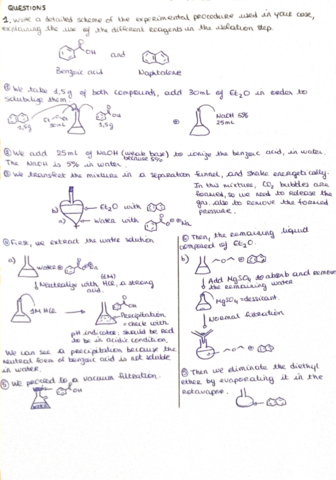 QUESTIONS
1. Write a detailed scheme of the experimental procedure used in your case,
explaining the use of the different reagents in the isolation step.
OH
and
Benzoic acid
Naphtalene
① We take 1,5g of both compounds, add 30mL of Et₂O in order to
solubilize them:
1,5g
Et₂O
30mL
1,5g
⊕
NaOH 5%
25mL
② We add 25mL of NaOH (weak base) to ionize the benzoic acid, in water.
because 5%
The NaOH is 5% in water
③ We transfect the mixture in a separation funnel, and shake energetically.
In this mixture, CO₂ bubbles are
formed, so we need to release the
gas, also to remove the formed
pressure.
b)
Et₂O with
a)
Water with
④ First, we extract the water solution
a)
water ⊕
(1M)
Neutralize with HCl, a strong
acid.
1M HCl
Precipitation
→ check with
pH indicator: should be red
to be in acidic condition.
We can see a precipitation because the
neutral form of benzoic acid is not soluble
in water.
⑤ We proceed to a vacuum filtration.
⑥ Then, the remaining liquid
composed of Et₂O.
b)
Add MgSO₄ to absorb and remove
the remaining water
MgSO₄ = dessicant.
Normal filtration
⑦ Then we eliminate the diethyl
ether by evaporating it in the
rotavapor.